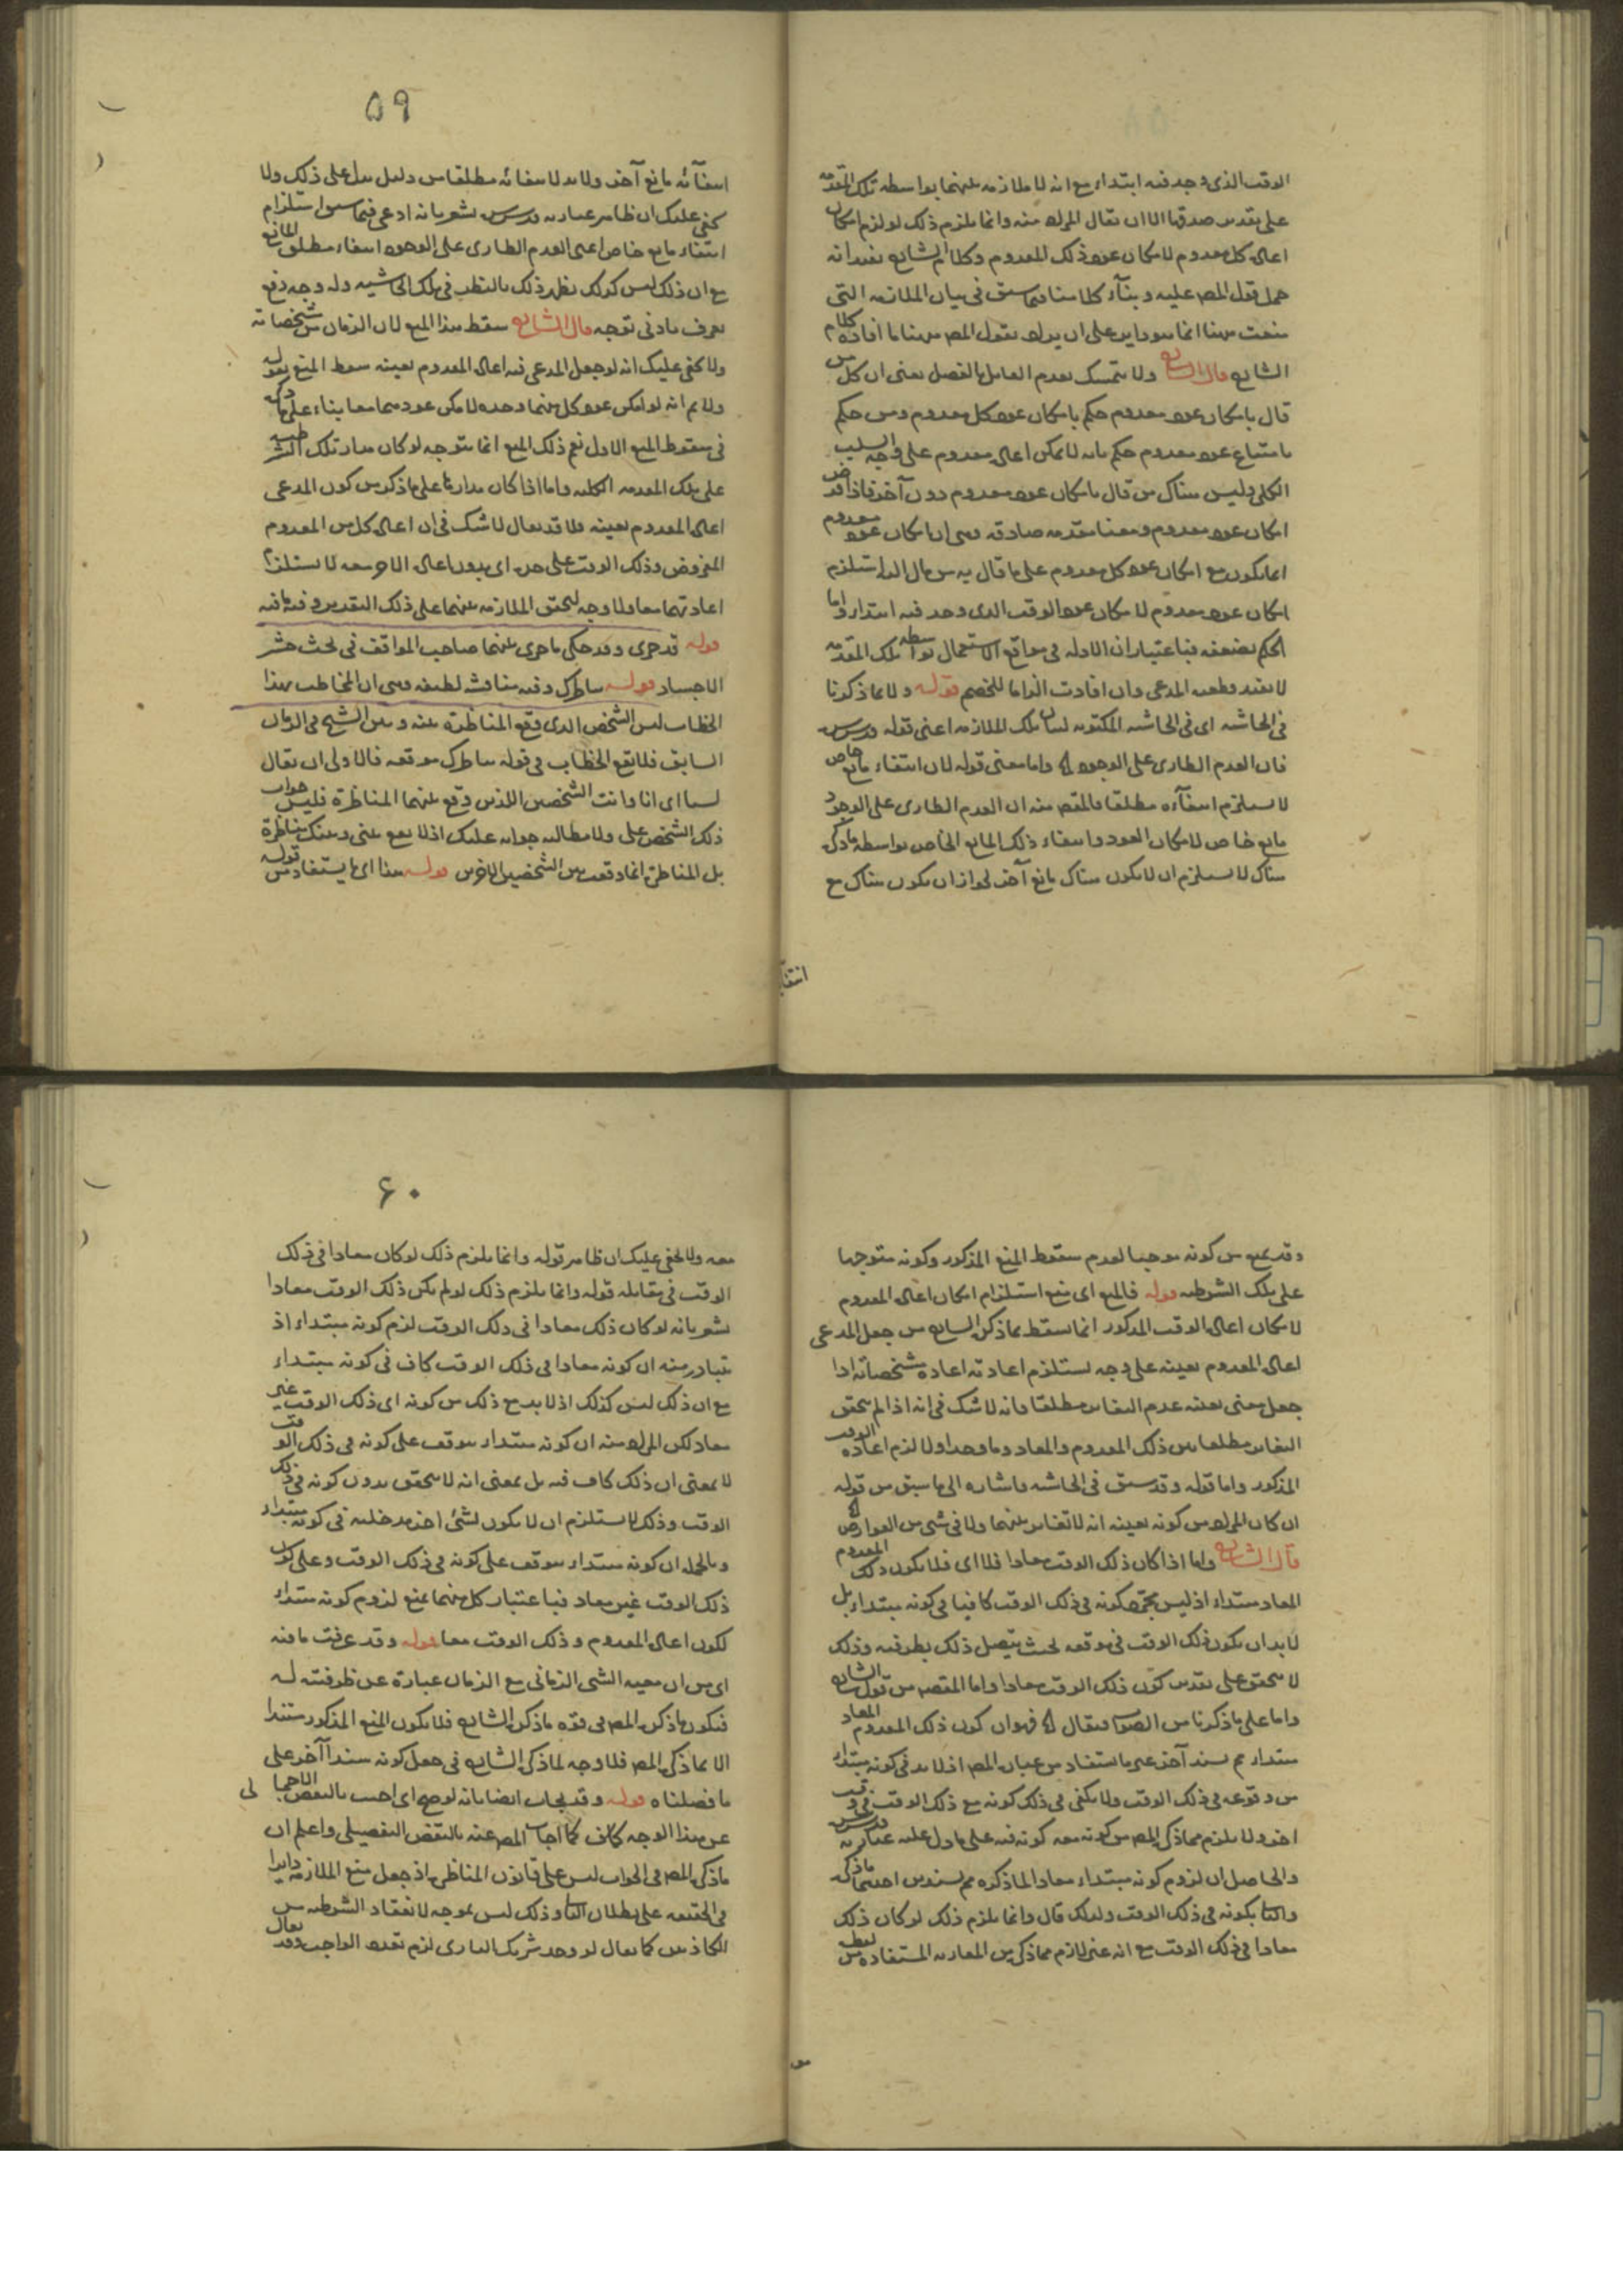 الوقت الذى وجد فيه ابتداء مع انه لا ملازمه بينهما بواسطه تلك المقدمه
على تقدير صدقها الا ان يقال المراد منه وانما يلزم ذلك لو لزم امكان
اعاده كل معدوم لامكان عود ذلك المعدوم وكلام الشارح بعد انه
حمل قول المص عليه وبناء كلامنا فيما سبق فى بيان الملازمه التى
منعت ههنا انما هو داير على ان يراد بقول المص ههنا ما افاده كلام
الشارح قال الشارح ولا يتمسك بعدم القايل بالفصل يعنى ان كل من
قال بامكان عود معدوم حكم بامكان عود كل معدوم ومن حكم
بامتناع عود معدوم حكم بانه لا يمكن اعاده معدوم على وجه السلب
الكلى وليس هناك من قال بامكان عود معدوم دون آخر فاذا فرض
امكان عود معدوم ومعنا مقدمه صادقه وهى ان امكان عود معدوم
انما يكون مع امكان عود كل معدوم على ما قال به من قال استلزم
امكان عود معدوم لامكان عود الوقت الذى وجد فيه ابتداء واما
الحكم بضعفه فباعتبار ان الادله فى مواقع الاستعمال بواسطه تلك المقدمه
لا تفيد قطعيه المدعى وان افادت الزاما للخصم قوله ولا لما ذكرنا
فى الحاشيه اى فى الحاشيه المكتوبه لبيان تلك الملازمه اعنى قوله قدس سره
فان العدم الطارى على الوجود واما معنى قوله لان انتفاء مانع خاص
لا يستلزم انتفآءه مطلقا فالمقصود منه ان العدم الطارى على الوجود
مانع خاص لامكان العود وانتفاء ذلك المانع الخاص بواسطه ما ذكر
هناك لا يستلزم ان لا يكون هناك مانع آخر لجواز ان يكون هناك مع
انتفآ
٥٩
انتفآئه مانع آخر ولا بد لانتفائه مطلقا من دليل يدل على ذلك ولا
يخفى عليك ان ظاهر عبارته قدس سره يشعر بانه ادعى فيما سبق استلزام
انتفاء مانع خاص اعنى العدم الطارى على الوجود انتفاء مطلق المانع
مع ان ذلك ليس كذلك يظهر ذلك بالنظر فى تلك الحاشيه وله وجه دفع
يعرف بادنى توجه قال الشارح سقط هذا المنع لان الزمان من مشخصاته
ولا يخفى عليك انه لو جعل المدعى فيه اعاده المعدوم بعينه سقط المنع بقوله
ولا نم انه لو امكن عود كل منهما وحده لامكن عودهما معا بناء على ما ذكره
فى سقوط المنع الاول نعم ذلك المنع انما يتوجه لو كان مدار تلك الشرطيه
على تلك المقدمه الكليه واما اذا كان مدارها على ما ذكر من كون المدعى
اعاده المعدوم بعينه فلا قد يقال لا شك فى ان اعاده كل من المعدوم
المفروض وذلك الوقت على حده اى بدون اعاده الاخر معه لا يستلزم
اعادتهما معا ولا وجه لتحقق الملازمه بينهما على ذلك التقدير وفيه ما فيه
قوله قد جرى وقد حكى ما جرى بينهما صاحب المواقف فى بحث حشر
الاجساد قوله مناظرك وفيه مناقشه لطيفه وهى ان المخاطب بهذا
الخطاب ليس الشخص الذى وقع المناظرة بينه وبين الشيخ فى الزمان
السابق فلا يقع الخطاب فى قوله مناظرك موقعه فالاولى ان يقال
لسنا اى انا وانت الشخصين اللذين وقع بينهما المناظرة فليس جواب
ذلك الشخص على ولا مطالبه جوابه عليك اذ لا يقع بينى وبينك مناظرة
بل المناظره انما وقعت بين الشخصين الاخرين قوله هذا اى ما يستفاد من قوله
وقد يمنع من كونه موجبا لعدم سقوط المنع المذكور وكونه متوجها
على تلك الشرطيه قوله فالمنع اى منع استلزام امكان اعاده المعدوم
لامكان اعاده الوقت المذكور انما سقط بما ذكره الشارح من جعل المدعى
اعاده المعدوم بعينه على وجه يستلزم اعادته اعاده مشخصاته اذا
جعل معنى بعينه عدم التغاير مطلقا فانه لا شك فى انه اذا لم يتحقق
التغاير مطلقا بين ذلك المعدوم والمعاد وما وجد اولا لزم اعاده الوقت
المذكور واما قوله وقد سبق فى الحاشيه فاشاره الى ما سبق من قوله
ان كان المراد من كونه بعينه انه لا تغاير بينهما ولا فى شئ من العوارض
قال الشارح واما اذا كان ذلك الوقت معادا فلا اى فلا يكون ذلك المعدوم
المعاد مبتداء اذ ليس مجرد كونه فى ذلك الوقت كافيا فى كونه مبتداء بل
لا بد ان يكون ذلك الوقت فى موقعه بحيث يتصل ذلك بطرفيه وذلك
لا يتحقق على تقدير كون ذلك الوقت معادا واما المقصود من قول الشارح
واما على ما ذكرنا من الصواب فيقال فهو ان كون ذلك المعدوم المعاد
مبتداء مم بسند آخر غير ما يستفاد من عباره المص اذ لا بد فى كونه مبتداء
من وقوعه فى ذلك الوقت ولا يكفى فى ذلك كونه مع ذلك الوقت فى وقت
اخر ولا يلزم مما ذكره المص من كونه معه كونه فيه على ما دل عليه عبارته قدس سره
والحاصل ان لزوم كونه مبتداء معادا لما ذكره مم بسندين احدهما ما ذكره
والثانى بكونه فى ذلك الوقت ولذلك قال وانما يلزم ذلك لو كان ذلك
معادا فى ذلك الوقت مع انه غير لازم مما ذكره من المقارنه المستفاده من لفظه
معه
٦٠
معه ولا يخفى عليك ان ظاهر قوله وانما يلزم ذلك لو كان معادا فى ذلك
الوقت فى مقابله قوله وانما يلزم ذلك لو لم يكن ذلك الوقت معادا
يشعر بانه لو كان ذلك معادا فى ذلك الوقت لزم كونه مبتداء اذ
يتبادر منه ان كونه معادا فى ذلك الوقت كاف فى كونه مبتداء
مع ان ذلك ليس كذلك اذ لا بد مع ذلك من كونه اى ذلك الوقت غير
معاد لكن المراد منه ان كونه مبتداء موقوف على كونه فى ذلك الوقت
لا بمعنى ان ذلك كاف فيه بل بمعنى انه لا يتحقق بدون كونه فى ذلك
الوقت وذلك لا يستلزم ان لا يكون لشئ اخر مدخليه فى كونه مبتداء
وبالجمله ان كونه مبتداء موقوف على كونه فى ذلك الوقت وعلى كون
ذلك الوقت غير معاد فباعتبار كل منهما يمنع لزوم كونه مبتداء
لكون اعاده المعدوم وذلك الوقت معا قوله وقد عرفت ما فيه
اى من ان معيه الشئ الزمانى مع الزمان عبارة عن ظرفيته له
فيكون ما ذكره المص فى قوه ما ذكره الشارح فلا يكون المنع المذكور مستندا
الا بما ذكره المص فلا وجه لما ذكره الشارح فى جعل كونه سندا آخر على
ما فصلناه قوله وقد يجاب ايضا بانه لو صح اى اجيب بالنقض الاجمالى
عن هذا الوجه كاف كما اجاب المص عنه بالنقض التفصيلى واعلم ان
ما ذكره المص فى الجواب ليس على قانون المناظره اذ جعل منع الملازمه دايرا
فى الحقيقه على بطلان التالى وذلك ليس بموجه لانعقاد الشرطيه من
الكاذبين كما يقال لو وجد شريك البارى لزم تعدد الواجب وقد يقال